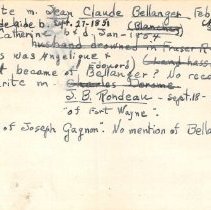 te m. Jean Claude Bellanger Feb
laide b. Sept. 27-1851 (Blanche)
Catherin b & d. Jan-1854
husband drowned in Fraser R
s was Angelique &
(Edouard)
t became of Bellanger? No reco
rite m. Charles Derome
J. B. Rondeau - sept. 18-
"of Fort Wayne".
of Joseph Gagnon". No mention of Bella